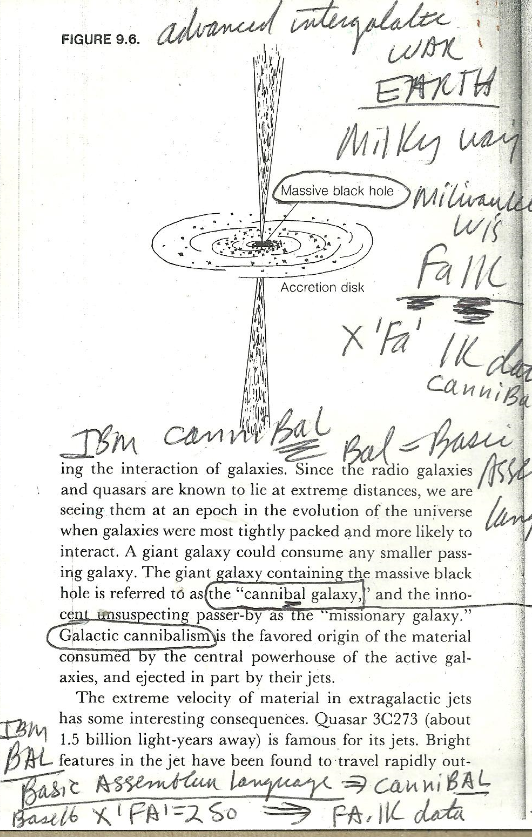 FIGURE 9.6. advanced intergalatic
WAR
EARTH
Milky way
Massive black hole
Milwaukee
Wis
Falk
Accretion disk
X'Fa' 1K data
canniBa
IBM canniBal Bal = Basic
Asse
lang
ing the interaction of galaxies. Since the radio galaxies
and quasars are known to lie at extreme distances, we are
seeing them at an epoch in the evolution of the universe
when galaxies were most tightly packed and more likely to
interact. A giant galaxy could consume any smaller pass-
ing galaxy. The giant galaxy containing the massive black
hole is referred to as the "cannibal galaxy," and the inno-
cent unsuspecting passer-by as the "missionary galaxy."
Galactic cannibalism is the favored origin of the material
consumed by the central powerhouse of the active gal-
axies, and ejected in part by their jets.
The extreme velocity of material in extragalactic jets
has some interesting consequences. Quasar 3C273 (about
1.5 billion light-years away) is famous for its jets. Bright
features in the jet have been found to travel rapidly out-
IBM
BAL
Basic Assembler Language ⇒ canniBAL
Base16 X'FA'=250 ⇒ FA.1K data